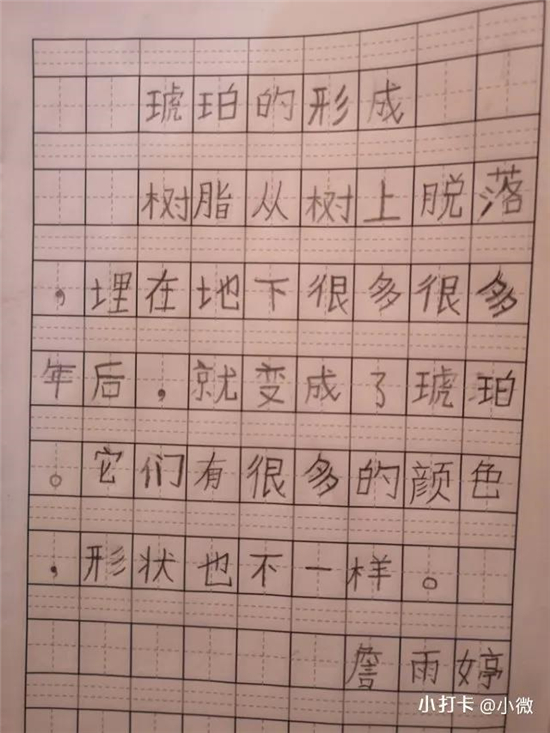 琥珀的形成
树脂从树上脱落
，埋在地下很多很多
年后，就变成了琥珀
。它们有很多的颜色
，形状也不一样。
詹雨婷
小打卡 @小微